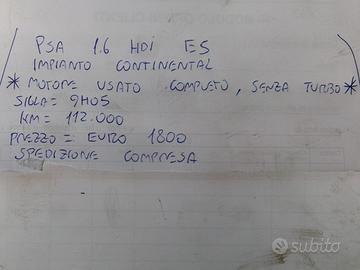 PSA 1.6 HDI E5
IMPIANTO CONTINENTAL
* MOTORE USATO COMPLETO, SENZA TURBO *
SIGLA = 9H05
KM = 112.000
PREZZO = EURO 1800
SPEDIZIONE COMPRESA
subito